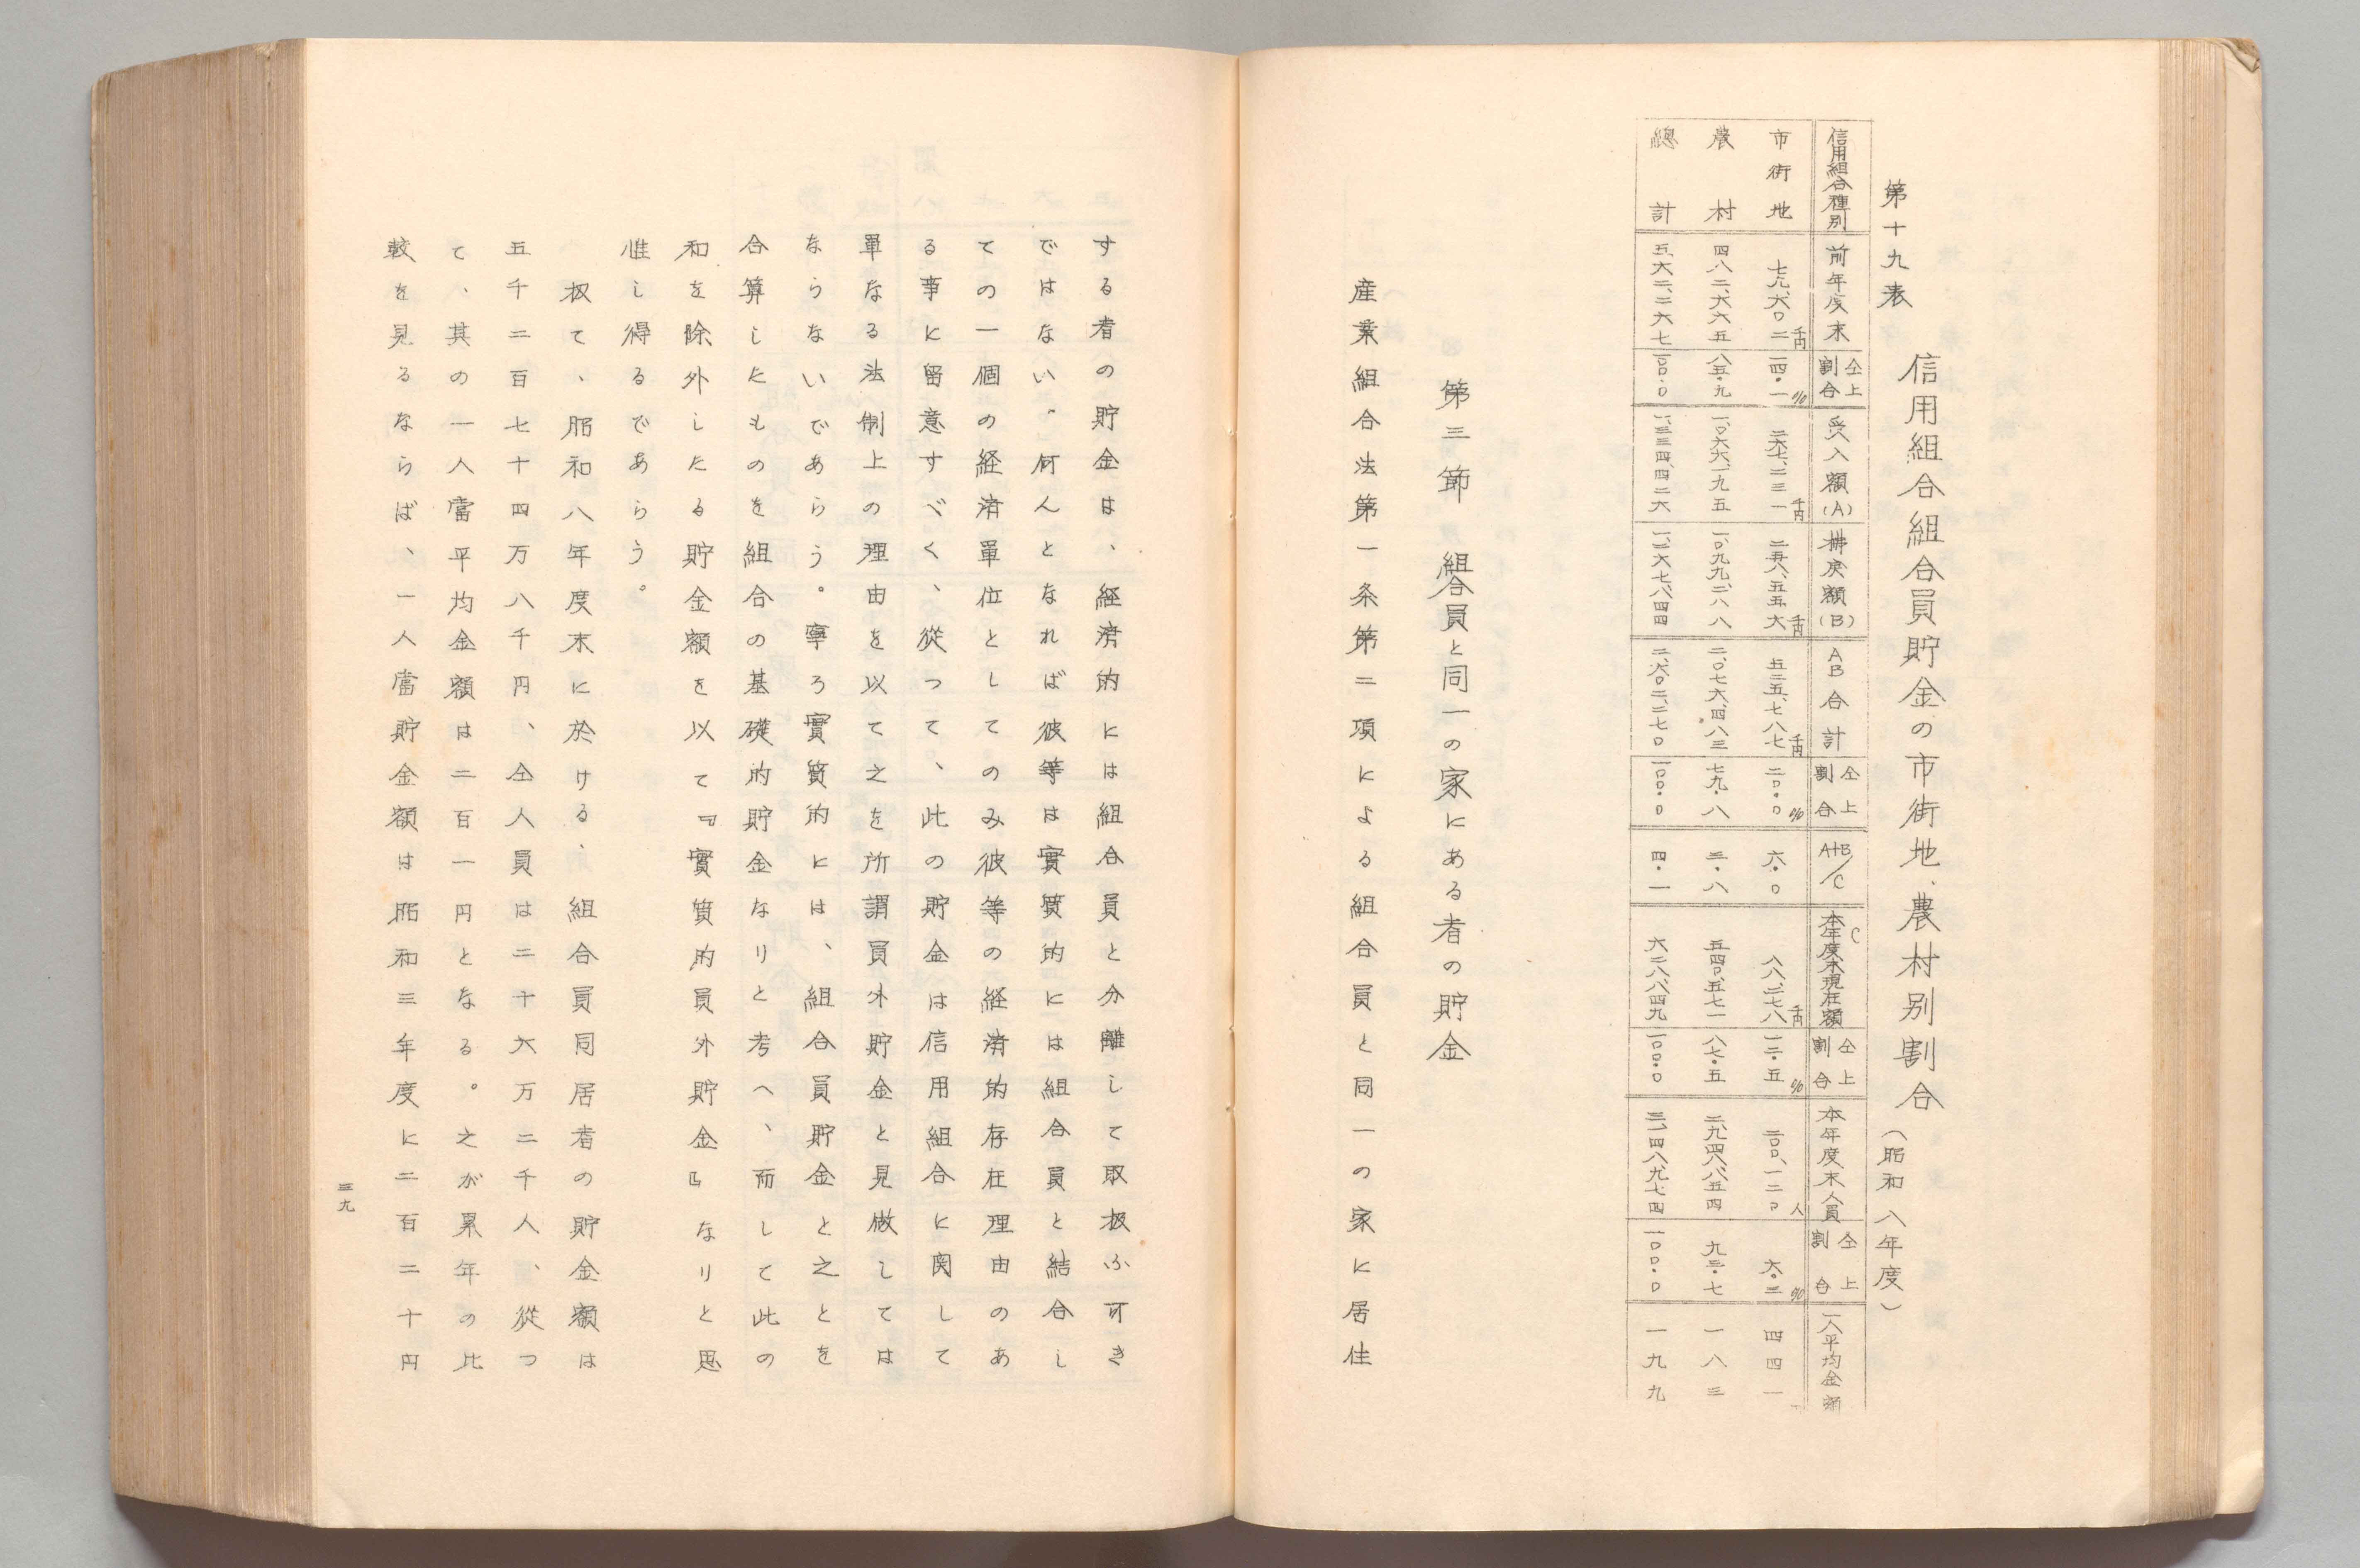 第十九表
信用組合組合員貯金の市街地、農村別割合(昭和八年度)
信用組合種別 前年度末 仝上割合 受入額(A) 拂戻額(B) AB合計 仝上割合 A+B/C 本年度末現在額C 仝上割合 本年度末人員 仝上割合 一人平均金額
市街地 七九、六〇二千円 一四・一% 二六七、二三一千円 二五八、五五六千円 五二五、七八七千円 二〇・〇% 六・〇 八八、二七八千円 一二・五% 二〇〇、一二〇人 六・三% 四四一
農村 四八二、六六五 八五・九 一、〇六七、一九五 一、〇〇九、二八八 二、〇七六、四八三 七九・八 三・八 五四〇、五七一 八七・五 二、九四八、八五四 九三・七 一八三
總計 五六二、二六七 一〇〇・〇 一、三三四、四二六 一、二六七、八四四 二、六〇二、二七〇 一〇〇・〇 四・一 六二八、八四九 一〇〇・〇 三、一四八、九七四 一〇〇・〇 一九九
第三節 組合員と同一の家にある者の貯金
産業組合法第一条第二項による組合員と同一の家に居住
する者の貯金は、経済的には組合員と分離して取扱ふ可き
ではない。何んとなれば彼等は實質的には組合員と結合し
ての一個の経済單位としてのみ彼等の経済的存在理由のあ
る事に留意すべく、從つて、此の貯金は信用組合に関して
單なる法制上の理由を以て之を所謂員外貯金と見做しては
ならないであらう。寧ろ實質的には、組合員貯金と之とを
合算したものを組合の基礎的貯金なりと考へ、而して此の
和を除外したる貯金額を以て『實質的員外貯金』なりと思
惟し得るであらう。
扨て、昭和八年度末に於ける、組合員同居者の貯金額は
五千二百七十四万八千円、仝人員は二十六万二千人、從つ
て、其の一人當平均金額は二百一円となる。之が累年の比
較を見るならば、一人當貯金額は昭和三年度に二百二十円
三九